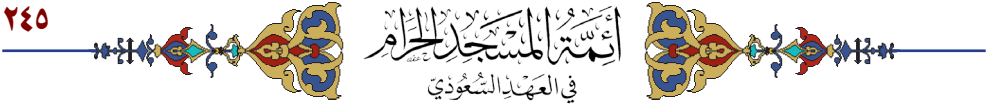 ٢٤٥
أَئِمَّةُ المَسْجِدِ الحَرَامِ
في العَهْدِ السُّعُوْدِيّ